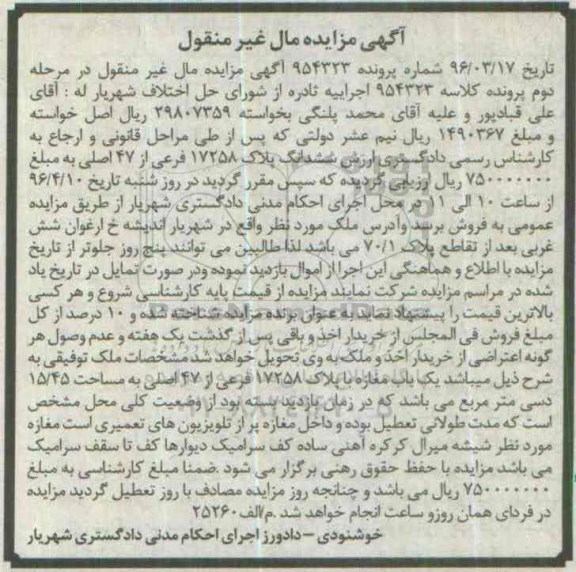 آگهی مزایده مال غیر منقول
تاریخ ۹۶/۰۳/۱۷ شماره پرونده ۹۵۴۳۲۳ آگهی مزایده مال غیر منقول در مرحله
دوم پرونده کلاسه ۹۵۴۳۲۳ اجراییه ثادره از شورای حل اختلاف شهریار له : آقای
علی قبادپور و علیه آقای محمد پلنگی بخواسته ۲۹۸۰۷۳۵۹ ریال اصل خواسته
و مبلغ ۱۴۹۰۳۶۷ ریال نیم عشر دولتی که پس از طی مراحل قانونی و ارجاع به
کارشناس رسمی دادگستری ارزش ششدانگ پلاک ۱۷۲۵۸ فرعی از ۴۷ اصلی به مبلغ
۷۵۰۰۰۰۰۰۰ ریال ارزیابی گردیده که سپس مقرر گردید در روز شنبه تاریخ ۹۶/۴/۱۰
از ساعت ۱۰ الی ۱۱ در محل اجرای احکام مدنی دادگستری شهریار از طریق مزایده
عمومی به فروش برسد وآدرس ملک مورد نظر واقع در شهریار اندیشه خ ارغوان شش
غربی بعد از تقاطع پلاک ۷۰/۱ می باشد لذا طالبین می توانند پنج روز جلوتر از تاریخ
مزایده با اطلاع و هماهنگی این اجرا از اموال بازدید نموده ودر صورت تمایل در تاریخ یاد
شده در مراسم مزایده شرکت نمایند مزایده از قیمت پایه کارشناسی شروع و هر کسی
بالاترین قیمت را پیشنهاد نماید به عنوان برنده مزایده شناخته شده و ۱۰ درصد از کل
مبلغ فروش فی المجلس از خریدار اخذ و باقی پس از گذشت یک هفته و عدم وصول هر
گونه اعتراضی از خریدار اخذ و ملک به وی تحویل خواهد شد مشخصات ملک توقیفی به
شرح ذیل میباشد یک باب مغازه با پلاک ۱۷۲۵۸ فرعی از ۴۷ اصلی به مساحت ۱۵/۴۵
دسی متر مربع می باشد که در زمان بازدید بسته بود از وضعیت کلی محل مشخص
است که مدت طولانی تعطیل بوده و داخل مغازه پر از تلویزیون های تعمیری است مغازه
مورد نظر شیشه میرال کرکره آهنی ساده کف سرامیک دیوارها کف تا سقف سرامیک
می باشد مزایده با حفظ حقوق رهنی برگزار می شود .ضمنا مبلغ کارشناسی به مبلغ
۷۵۰۰۰۰۰۰۰ ریال می باشد و چنانچه روز مزایده مصادف با روز تعطیل گردید مزایده
در فردای همان روزو ساعت انجام خواهد شد .م/الف۲۵۲۶۰
خوشنودی – دادورز اجرای احکام مدنی دادگستری شهریار